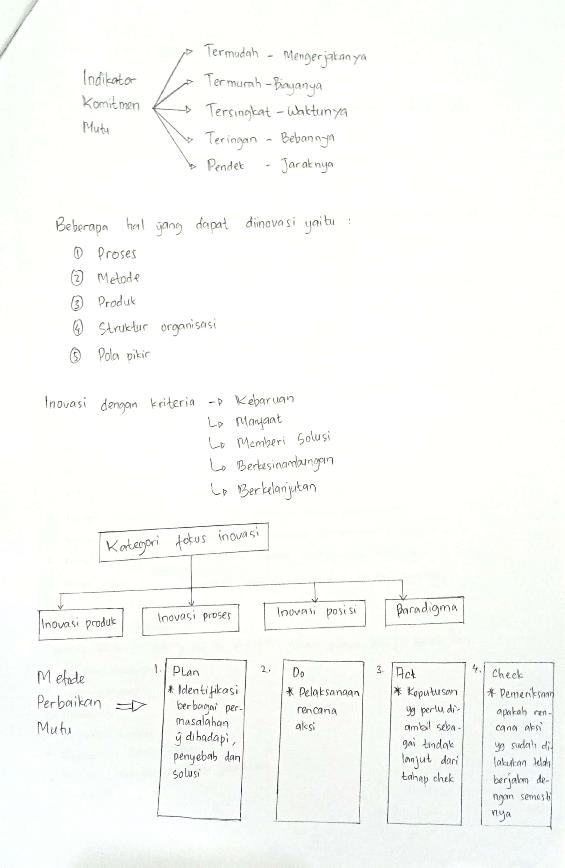 Indikator
Komitmen
Mutu
Termudah - Mengerjakanya
Termurah - Biayanya
Tersingkat - Waktunya
Teringan - Bebannya
Pendek - Jaraknya
Beberapa hal yang dapat diinovasi yaitu :
① Proses
② Metode
③ Produk
④ Struktur organisasi
⑤ Pola pikir
Inovasi dengan kriteria → Kebaruan
↳ Manfaat
↳ Memberi Solusi
↳ Berkesinambungan
↳ Berkelanjutan
Kategori fokus inovasi
Inovasi produk
Inovasi proses
Inovasi posisi
Paradigma
Metode
Perbaikan ⇒
Mutu
1. Plan
* Identifikasi
berbagai per-
masalahan
yg dihadapi,
penyebab dan
solusi
2. Do
* Pelaksanaan
rencana
aksi
3. Act
* Keputusan
yg perlu di-
ambil seba-
gai tindak
lanjut dari
tahap chek
4. Check
* Pemeriksaan
apakah ren-
cana aksi
yg sudah di
lakukan telah
berjalan de-
ngan semesti
nya